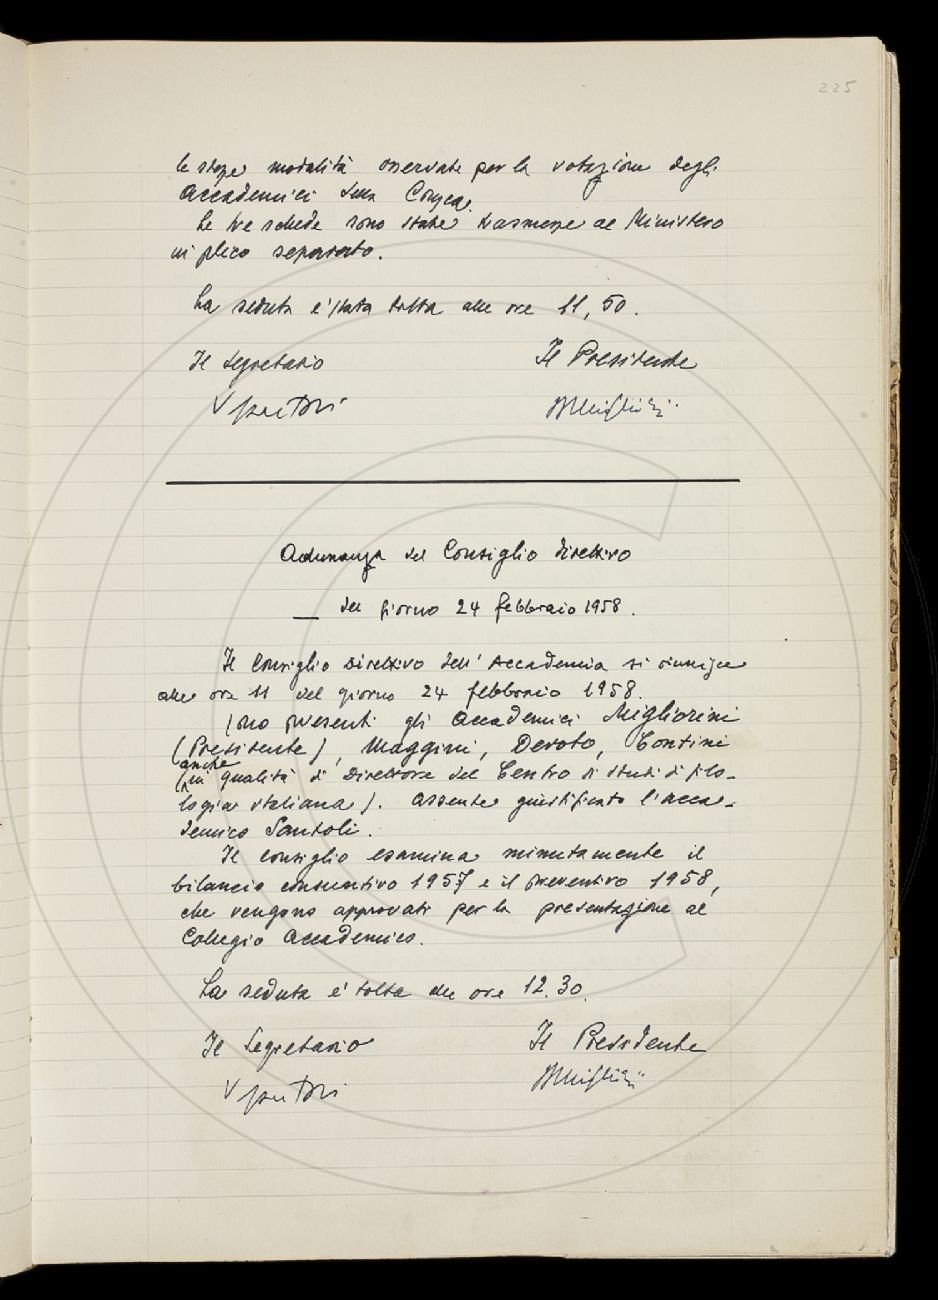 225
le stesse modalità osservate per la votazione degli
Accademici della Crusca.
Le tre schede sono state trasmesse al Ministero
in plico separato.
La seduta è stata tolta alle ore 11,50.
Il Segretario Il Presidente
Adunanza del Consiglio direttivo
del giorno 24 febbraio 1958.
Il Consiglio Direttivo dell'Accademia si riunisce
alle ore 11 del giorno 24 febbraio 1958.
Sono presenti gli Accademici Migliorini
(Presidente), Maggini, Devoto, Contini
(anche in qualità di Direttore del Centro di studi di filo-
logia italiana). Assente giustificato l'acca-
demico Santoli.
Il consiglio esamina minutamente il
bilancio consuntivo 1957 e il preventivo 1958,
che vengono approvati per la presentazione al
Collegio Accademico.
La seduta è tolta alle ore 12.30.
Il Segretario Il Presidente